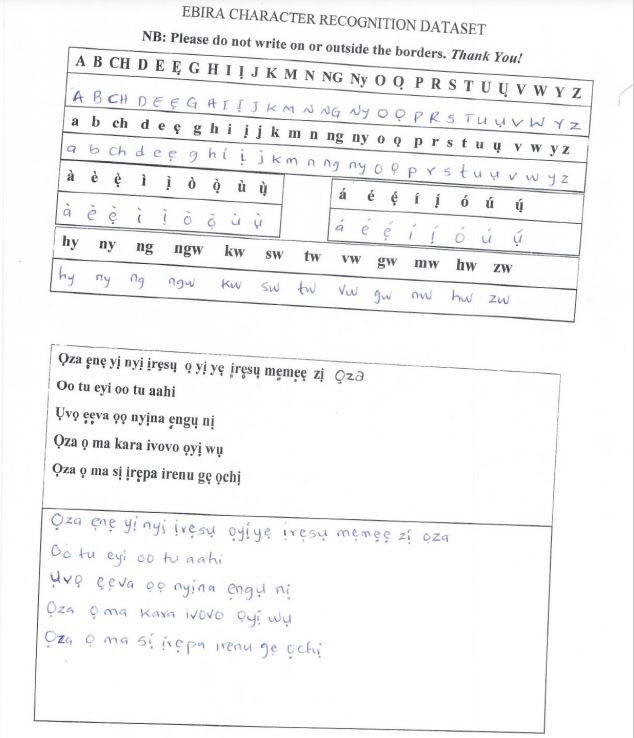 EBIRA CHARACTER RECOGNITION DATASET
NB: Please do not write on or outside the borders. Thank You!
A B CH D E Ẹ G H I Ị J K M N NG Ny O Ọ P R S T U Ụ V W Y Z
A B CH D E Ẹ G H I Ị J K M N NG Ny O Ọ P R S T U Ụ V W Y Z
a b ch d e ẹ g h i ị j k m n ng ny o ọ p r s t u ụ v w y z
a b ch d e ẹ g h i ị j k m n ng ny o ọ p r s t u ụ v w y z
à è ẹ̀ ì ị̀ ò ọ̀ ù ụ̀
à è ẹ̀ ì ị̀ ò ọ̀ ù ụ̀
á é ẹ́ í ị́ ó ú ụ́
á é ẹ́ í ị́ ó ú ụ́
hy ny ng ngw kw sw tw vw gw mw hw zw
hy ny ng ngw kw sw tw vw gw nw hw zw
Ọza ẹnẹ yị nyị ịrẹsụ ọ yị yẹ ịrẹsụ mẹmẹẹ zị Ọza
Oo tu eyi oo tu aahi
Ụvọ ẹẹva ọọ nyịna ẹngụ nị
Ọza ọ ma kara ivovo ọyị wụ
Ọza ọ ma sị ịrẹpa irenu gẹ ọchị
Ọza ẹnẹ yị nyị ịrẹsụ ọyịyẹ ịrẹsụ mẹmẹẹ zị ọza
Oo tu eyi oo tu aahi
Ụvọ ẹẹva ọọ nyịna ẹngụ nị
Ọza ọ ma kara ivovo ọyị wụ
Ọza ọ ma sị ịrẹpa irenu gẹ ọchị